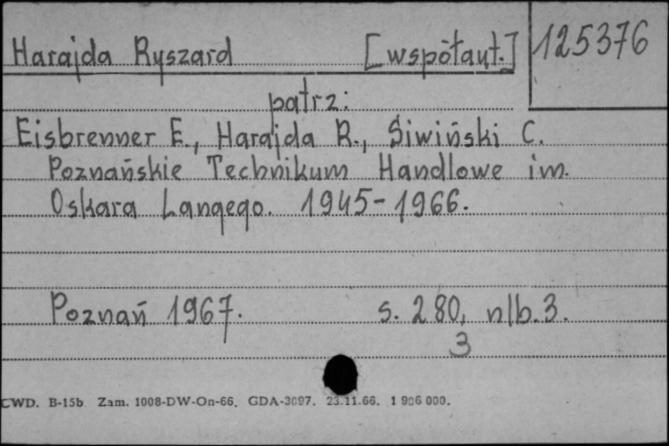 Harajda Ryszard [współaut.] 125376
patrz:
Eisbrenner E., Harajda R., Siwiński C.
Poznańskie Technikum Handlowe im.
Oskara Langego. 1945-1966.
Poznań 1967. s. 280, nlb. 3.
3
CWD. B-15b Zam. 1008-DW-On-66. GDA-3097. 23.11.66. 1 906 000.